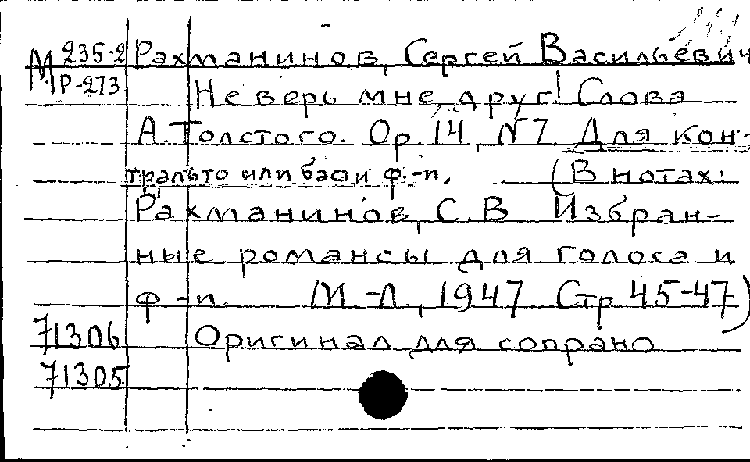 М 235-2 Рахманинов, Сергей Васильевич
Р-273 Не верь мне, друг! Слова
А. Толстого. Ор. 14, №7. Для кон-
тральто или баса и ф.-п. (В нотах:
Рахманинов, С. В. Избран-
ные романсы для голоса и
ф.-п. М.-Л., 1947. Стр. 45-47)
71306 Оригинал для сопрано
71305